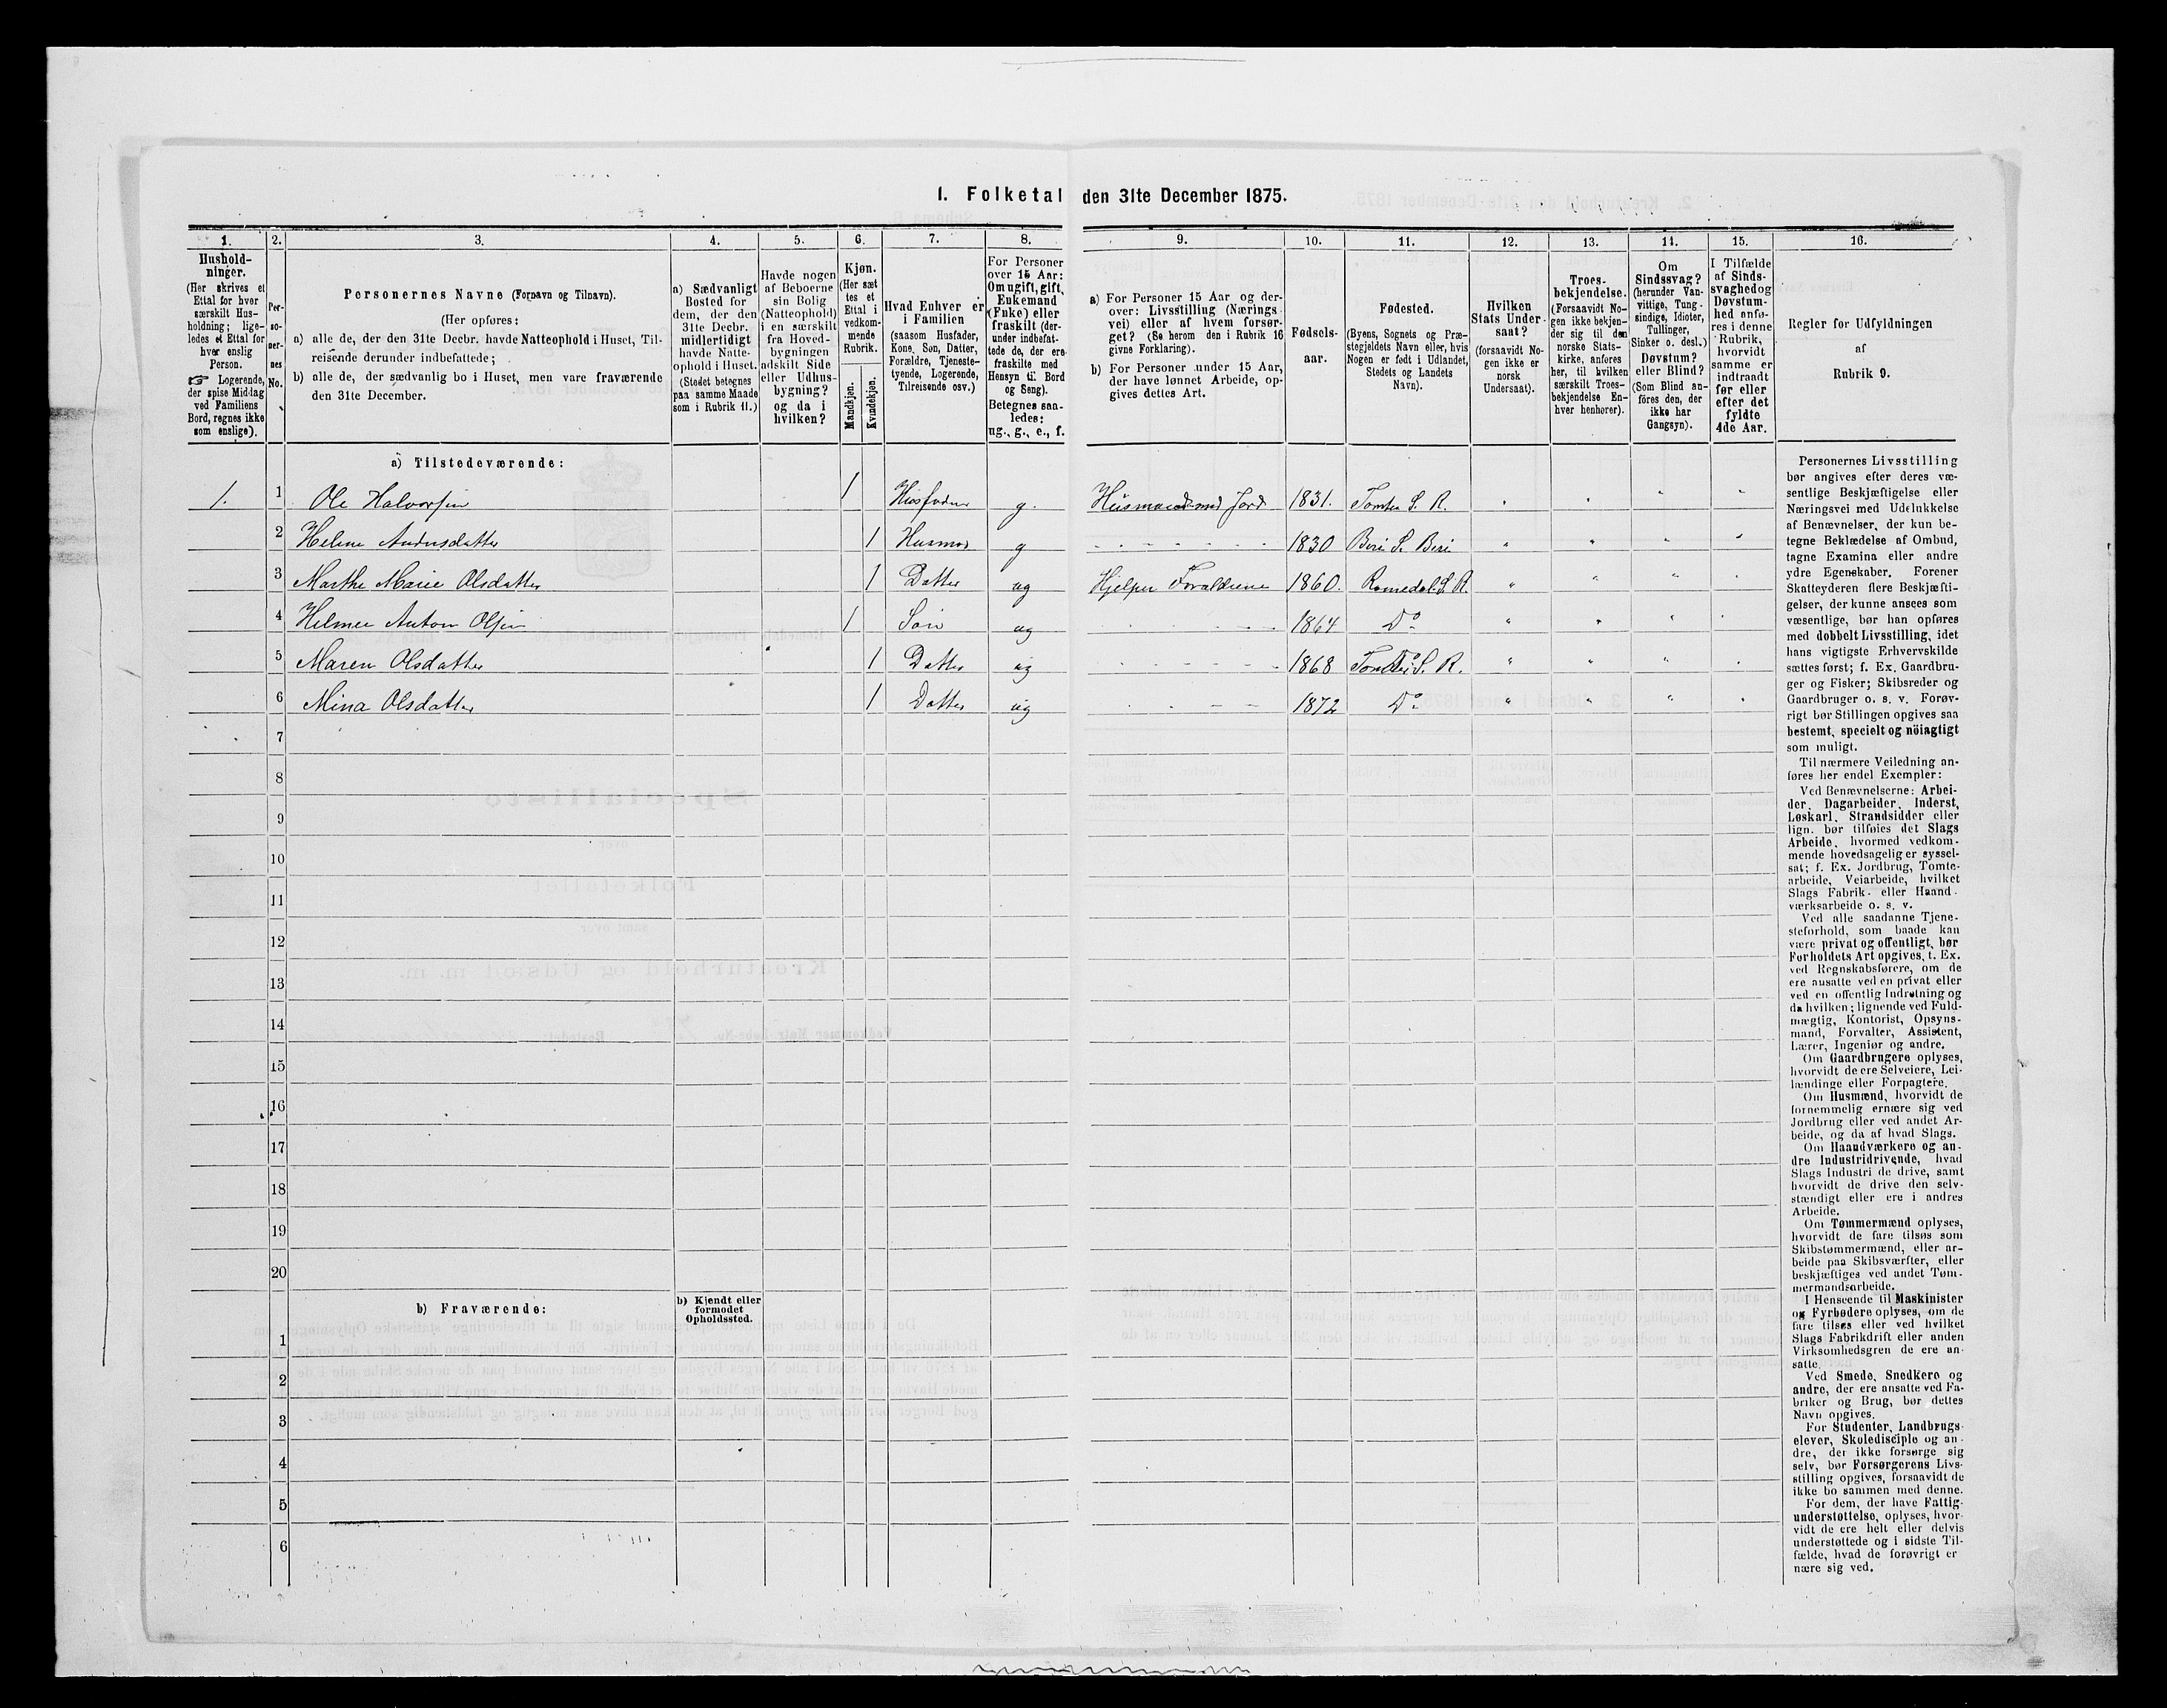 1. Folketal den 31te December 1875.
1.
2.
3.
4.
5.
6.
7.
8.
9.
10.
11.
12.
13.
14.
15.
16.
Hushold-
ninger.
(Her skrives et
Ettal for hver
særskilt Hus-
holdning; lige-
ledes et Ettal for
hver enslig
Person.
☞ Logerende,
der spise Middag
ved Familiens
Bord, regnes ikke
som enslige).
Per-
so-
ner-
nes
No.
Personernes Navne (Fornavn og Tilnavn).
(Her opføres:
a) alle de, der den 31te Decbr. havde Natteophold i Huset, Til-
reisende derunder indbefattede;
b) alle de, der sædvanlig bo i Huset, men vare fraværende
den 31te December.
a) Sædvanligt
Bosted for
dem, der den
31te Decbr.
midlertidigt
havde Natte-
ophold i Huset.
(Stedet betegnes
paa samme Maade
som i Rubrik 11.)
Havde nogen
af Beboerne
sin Bolig
(Natteophold)
i en særskilt
fra Hoved-
bygningen
adskilt Side
eller Udhus-
bygning?
og da i
hvilken?
Kjøn.
(Her sæt
tes et
Ettal i
vedkom-
mende
Rubrik.
Mandkjøn.
Kvindekjøn.
Hvad Enhver er
i Familien
(saasom Husfader,
Kone, Søn, Datter,
Forældre, Tjeneste-
tyende, Logerende,
Tilreisende osv.)
For Personer
over 15 Aar:
Om ugift, gift,
Enkemand
(Enke) eller
fraskilt (der-
under indbefat-
tede de, der ere
fraskilte med
Hensyn til Bord
og Seng).
Betegnes saa-
ledes:
ug., g., e., f.
a) For Personer 15 Aar og der-
over: Livsstilling (Nærings-
vei) eller af hvem forsør-
get? (Se herom den i Rubrik 16
givne Forklaring).
b) For Personer under 15 Aar,
der have lønnet Arbeide, op-
gives dettes Art.
Fødsels-
aar.
Fødested.
(Byens, Sognets og Præ-
stegjeldets Navn eller, hvis
Nogen er født i Udlandet,
Stedets og Landets
Navn).
Hvilken
Stats Under-
saat?
(forsaavidt No-
gen ikke er
norsk
Undersaat).
Troes-
bekjendelse.
(Forsaavidt No-
gen ikke bekjen-
der sig til den
norske Stats-
kirke, anføres
her, til hvilken
særskilt Troes-
bekjendelse En-
hver henhører).
Om
Sindssvag?
(herunder Van-
vittige, Tung-
sindige, Idioter,
Tullinger,
Sinker o. desl.)
Døvstum?
eller Blind?
(Som Blind an-
föres den, der
ikke har
Gangsyn).
I Tilfælde
af Sinds-
svaghed og
Døvstum-
hed anfø-
res i denne
Rubrik,
hvorvidt
samme er
indtraadt
før eller
efter det
fyldte
4de Aar.
Regler for Udfyldningen
af
Rubrik 9.
a) Tilstedeværende:
1. 1 Ole Halvorsen 1 Husfader g. Husmand med Jord 1831. Tomter S. R. " " "
2 Helene Andersdatter 1 Husmor g - - - - - - 1830 Biri S. Biri " " " "
3 Marthe Marie Olsdatter 1 Datter ug Hjelper Forældrene 1860. Romedal S. R. " " " "
4 Helmer Anton Olsen 1 Søn ug - - - - 1864 Do " " " "
5 Maren Olsdatter 1 Datter ug - - - - - 1868 Tomter S. R. " " " "
6 Mina Olsdatter 1 Datter ug - - - - 1872 Do " " " "
7
8
9
10
11
12
13
14
15
16
17
18
19
20
b) Fraværende:
b) Kjendt eller
formodet
Opholdssted.
1
2
3
4
5
6
Personernes Livsstilling
bør angives efter deres væ-
sentlige Beskjæftigelse eller
Næringsvei med Udelukkelse
af Benævnelser, der kun be-
tegne Beklædelse af Ombud,
tagne Examina eller andre
ydre Egenskaber. Forener
Skatteyderen flere Beskjæfti-
gelser, der kunne ansees som
væsentlige, bør han opføres
med dobbelt Livsstilling, idet
hans vigtigste Erhvervskilde
sættes først; f. Ex. Gaardbru-
ger og Fisker; Skibsreder og
Gaardbruger o. s. v. Forøv-
rigt bør Stillingen opgives saa
bestemt, specielt og nöiagtigt
som muligt.
Til nærmere Veiledning an-
føres her endel Exempler:
Ved Benævnelserne: Arbei-
der, Dagarbeider, Inderst,
Løskarl, Strandsidder eller
lign. bør tilføies det Slags
Arbeide, hvormed vedkom-
mende hovedsagelig er syssel-
sat; f. Ex. Jordbrug, Tomte-
arbeide, Veiarbeide, hvilket
Slags Fabrik- eller Haand-
værksarbeide o. s. v.
Ved alle saadanne Tjene-
steforhold, som baade kan
være privat og offentligt, bør
Forholdets Art opgives, t. Ex.
ved Regnskabsførere, om de
ere ansatte ved en privat eller
ved en offentlig Indretning og
da hvilken; lignende ved Fuld-
mægtig, Kontorist, Opsyns-
mand, Forvalter, Assistent,
Lærer, Ingeniør og andre.
Om Gaardbrugere oplyses,
hvorvidt de ere Selveiere, Lei-
lændinge eller Forpagtere.
Om Husmænd, hvorvidt de
fornemmelig ernære sig ved
Jordbrug eller ved andet Ar-
beide, og da af hvad Slags.
Om Haandværkere og an-
dre Industridrivende, hvad
Slags Industri de drive, samt
hvorvidt de drive den selv-
stændigt eller ere i andres
Arbeide.
Om Tømmermænd oplyses,
hvorvidt de fare tilsøs som
Skibstømmermænd, eller ar-
beide paa Skibsværfter, eller
beskjæftiges ved andet Tøm-
mermandsarbeide.
I Henseende til Maskinister
og Fyrbødere oplyses, om de
fare tilsøs eller ved hvilket
Slags Fabrikdrift eller anden
Virksomhedsgren de ere an-
satte.
Ved Smede, Snedkere og
andre, der ere ansatte ved Fa-
briker og Brug, bør dettes
Navn opgives.
For Studenter, Landbrugs-
elever, Skoledisciple og an-
dre, der ikke forsørge sig
selv, bør Forsørgerens Livs-
stilling opgives, forsaavidt de
ikke bo sammen med denne.
For dem, der have Fattig-
understøttelse, oplyses, hvor-
vidt de ere helt eller delvis
understøttede og i sidste Til-
fælde, hvad de forøvrigt er
nære sig ved.